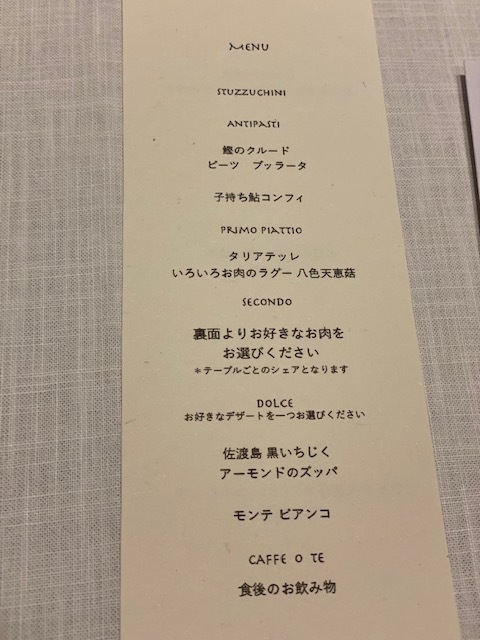 MENU
STUZZUCHINI
ANTIPASTI
鰹のクルード
ビーツ　ブッラータ
子持ち鮎コンフィ
PRIMO PIATTIO
タリアテッレ
いろいろお肉のラグー 八色天恵菇
SECONDO
裏面よりお好きなお肉を
お選びください
＊テーブルごとのシェアとなります
DOLCE
お好きなデザートを一つお選びください
佐渡島 黒いちじく
アーモンドのズッパ
モンテ ビアンコ
CAFFE O TE
食後のお飲み物